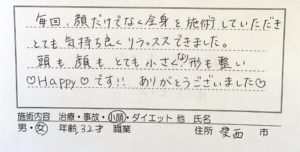 毎回、顔だけでなく全身を施術していただき
とても気持ち良くリラックスできました。
頭も顔もとても小さくなり形も整い
♡Happy♡です!! ありがとうございました♡
施術内容 治療・事故・小顔・ダイエット 他 氏名
男・女 年齢 32才 職業 住所 愛西 市